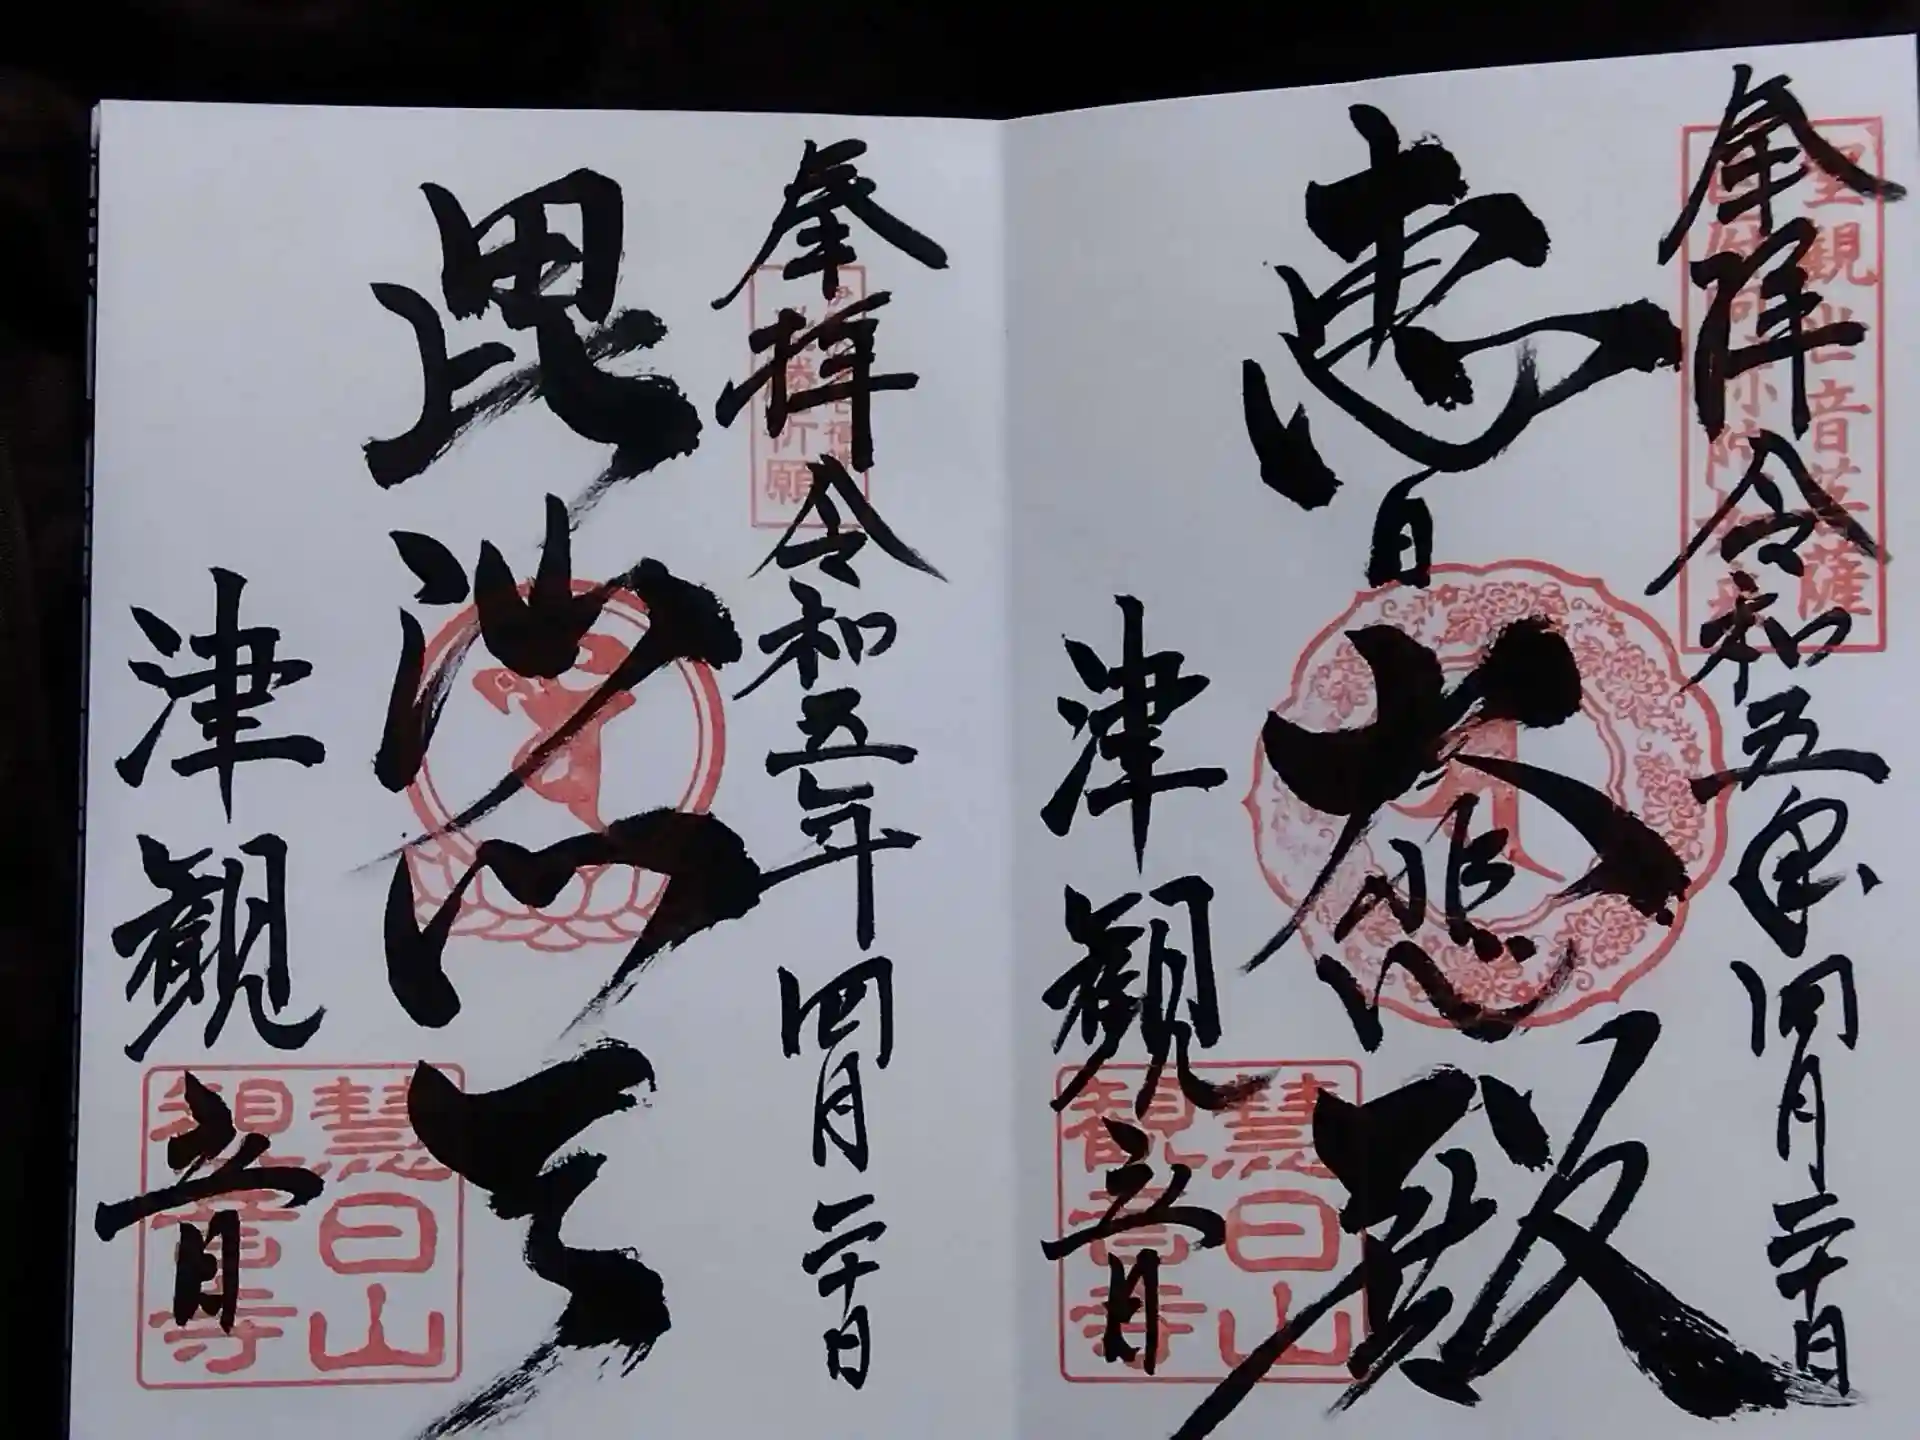 奉拝 令和五年四月二十日
聖観世音菩薩
恵日
大悲殿
津観音
慧日山
観音寺
奉拝 令和五年四月二十日
祈願
毘沙門天
津観音
慧日山
観音寺